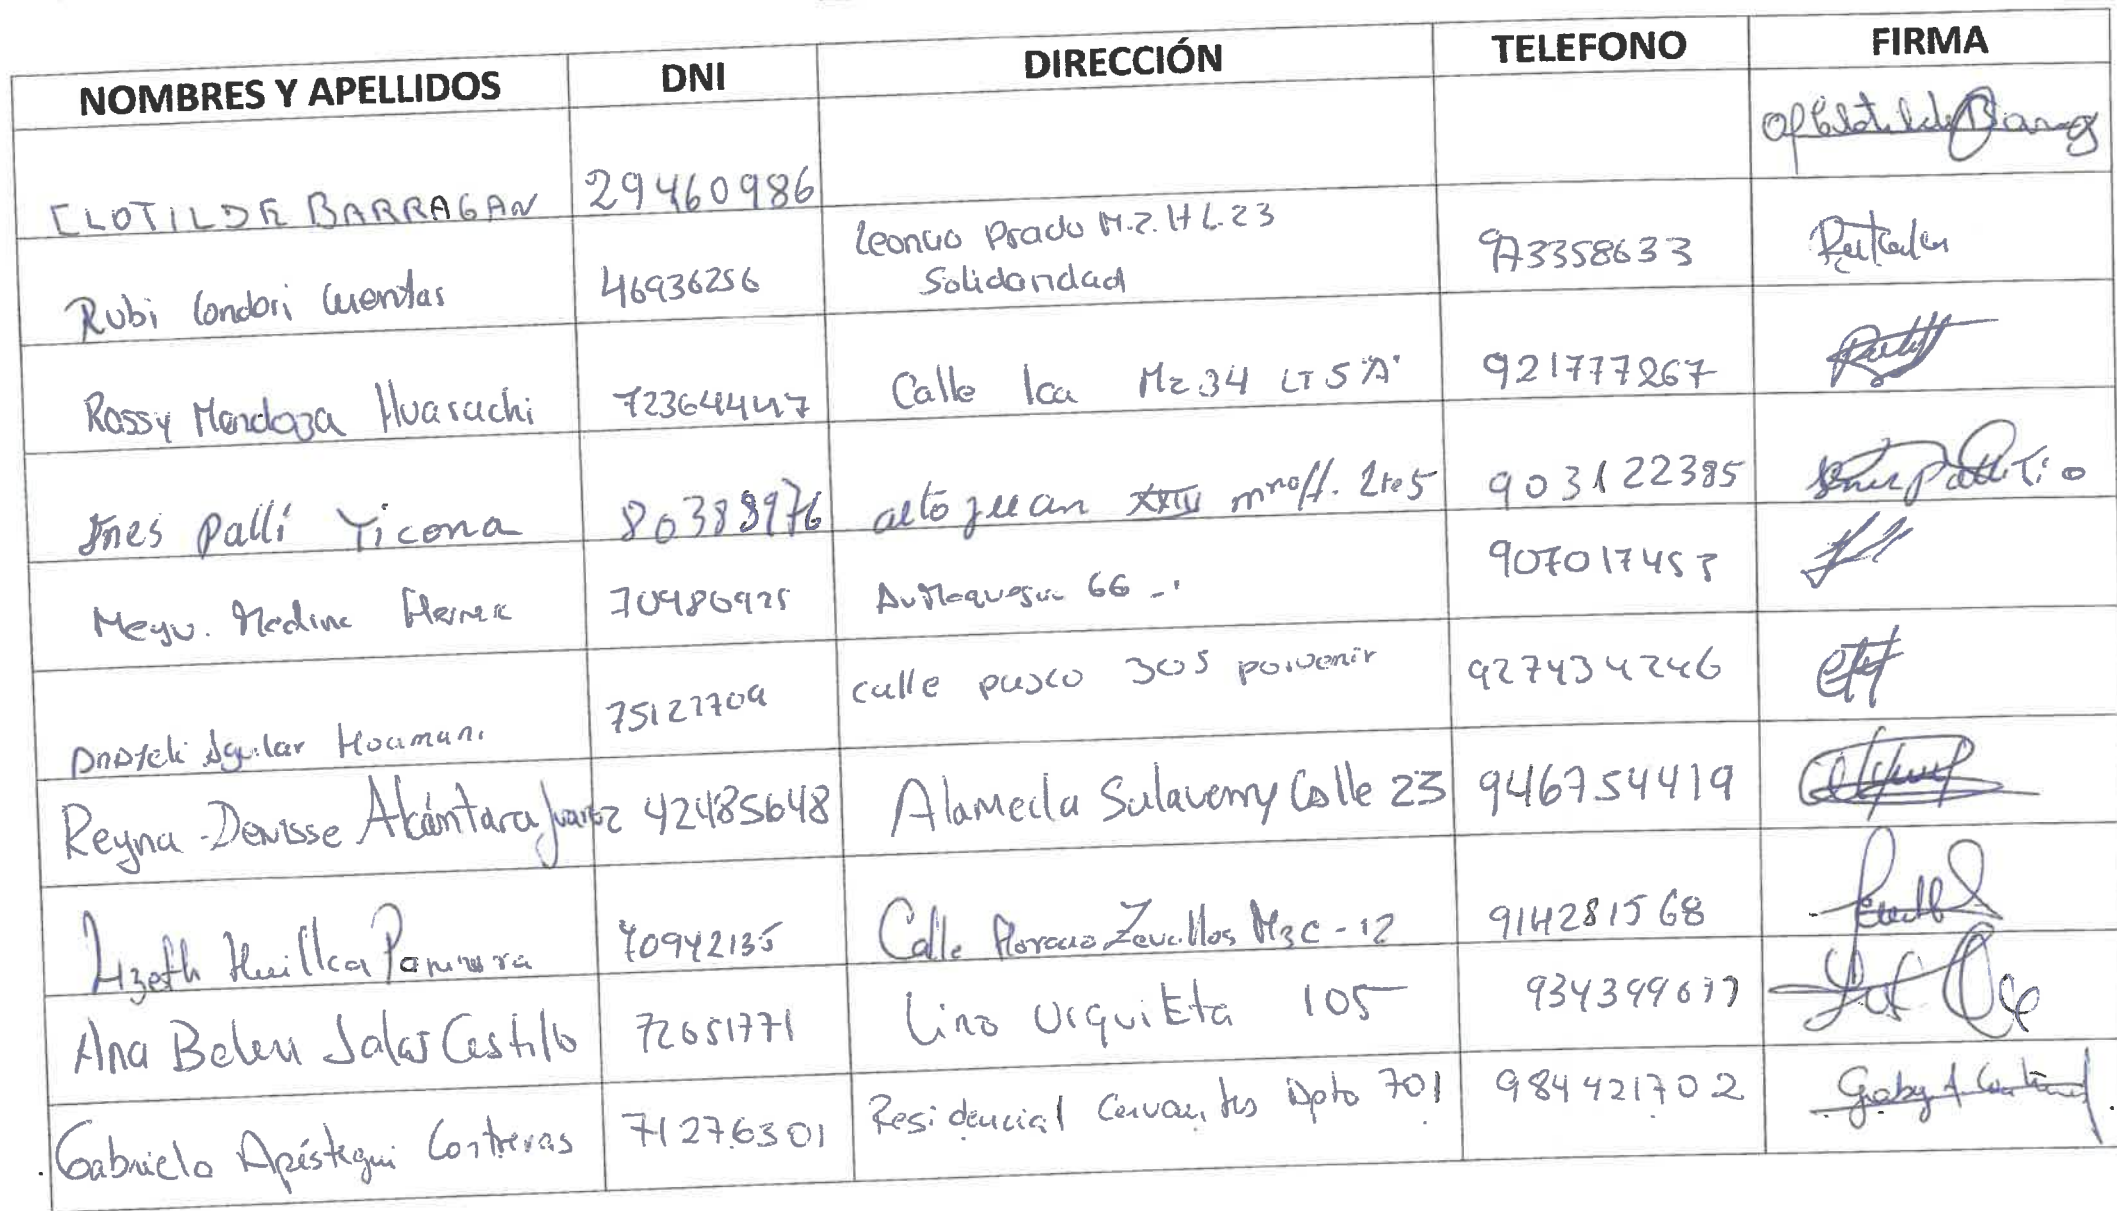 NOMBRES Y APELLIDOS DNI DIRECCIÓN TELEFONO FIRMA
CLOTILDE BARRAGAN 29460986
Rubi Condori Cuentas 46936256 Leoncio Prado M.z. H L.23 973358633
Solidaridad
Rossy Mendoza Huarachi 72364447 Calle Ica Mz 34 LT 5 "A" 921777267
Ines Palli Ticona 80388976 alto juan XXIII 903122385
Medina 907017453
Aguilar Huamani calle pasco 305 porvenir 927434246
Reyna Denisse Alcántara Juarez 42485648 Alameda Salaverry Calle 23 946754419
Lizeth Huillca 70942135 Calle Zevallos Mz C - 12 914281568
Ana Belen Salas Castillo 72651771 Lino Urquieta 105
Gabriela Apéstegui Contreras 71276301 Residencial Cervantes Dpto 701 984421702